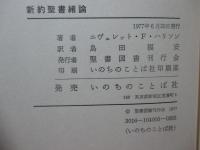 新約聖書緒論
1977年6月20日発行
著者 エヴェレット・F・ハリソン
訳者 島田福安
発行者 聖書図書刊行会
印刷 いのちのことば社印刷部
発売 いのちのことば社
3016-101000-0825
(いのちのことば社)